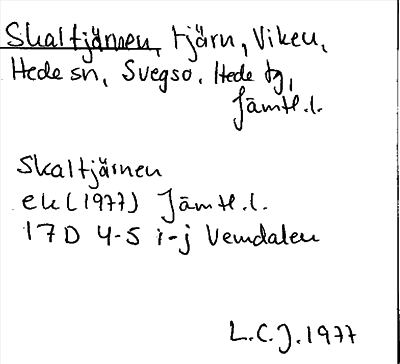 Skaltjärnen, tjärn, Viken,
Hede sn, Svegs o. Hede tg,
Jämtl.l.
Skaltjärnen
ek (1977) Jämtl.l.
17D 4-5 i-j Vemdalen
L.C.J. 1977